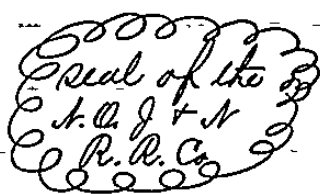 seal of the
N. O. J & N
R. R. Co